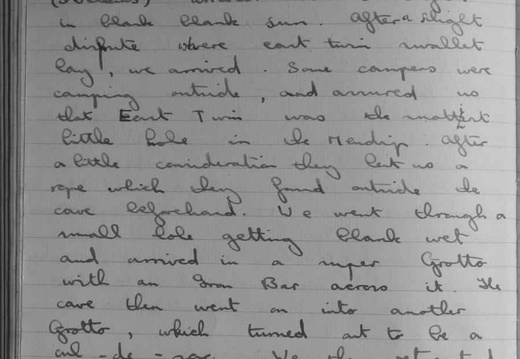 in blank blank sun. After a slight
dispute where east twin swallet
lay, we arrived. Some campers were
camping outside, and assured us
that East Twin was the
little hole in the Mendip. After
a little consideration they lent us a
rope which they found outside the
cave beforehand. We went through a
small hole getting blank wet
and arrived in a super Grotto
with an Iron Bar across it. The
cave then went on into another
Grotto, which turned out to be a
cul-de-sac. We